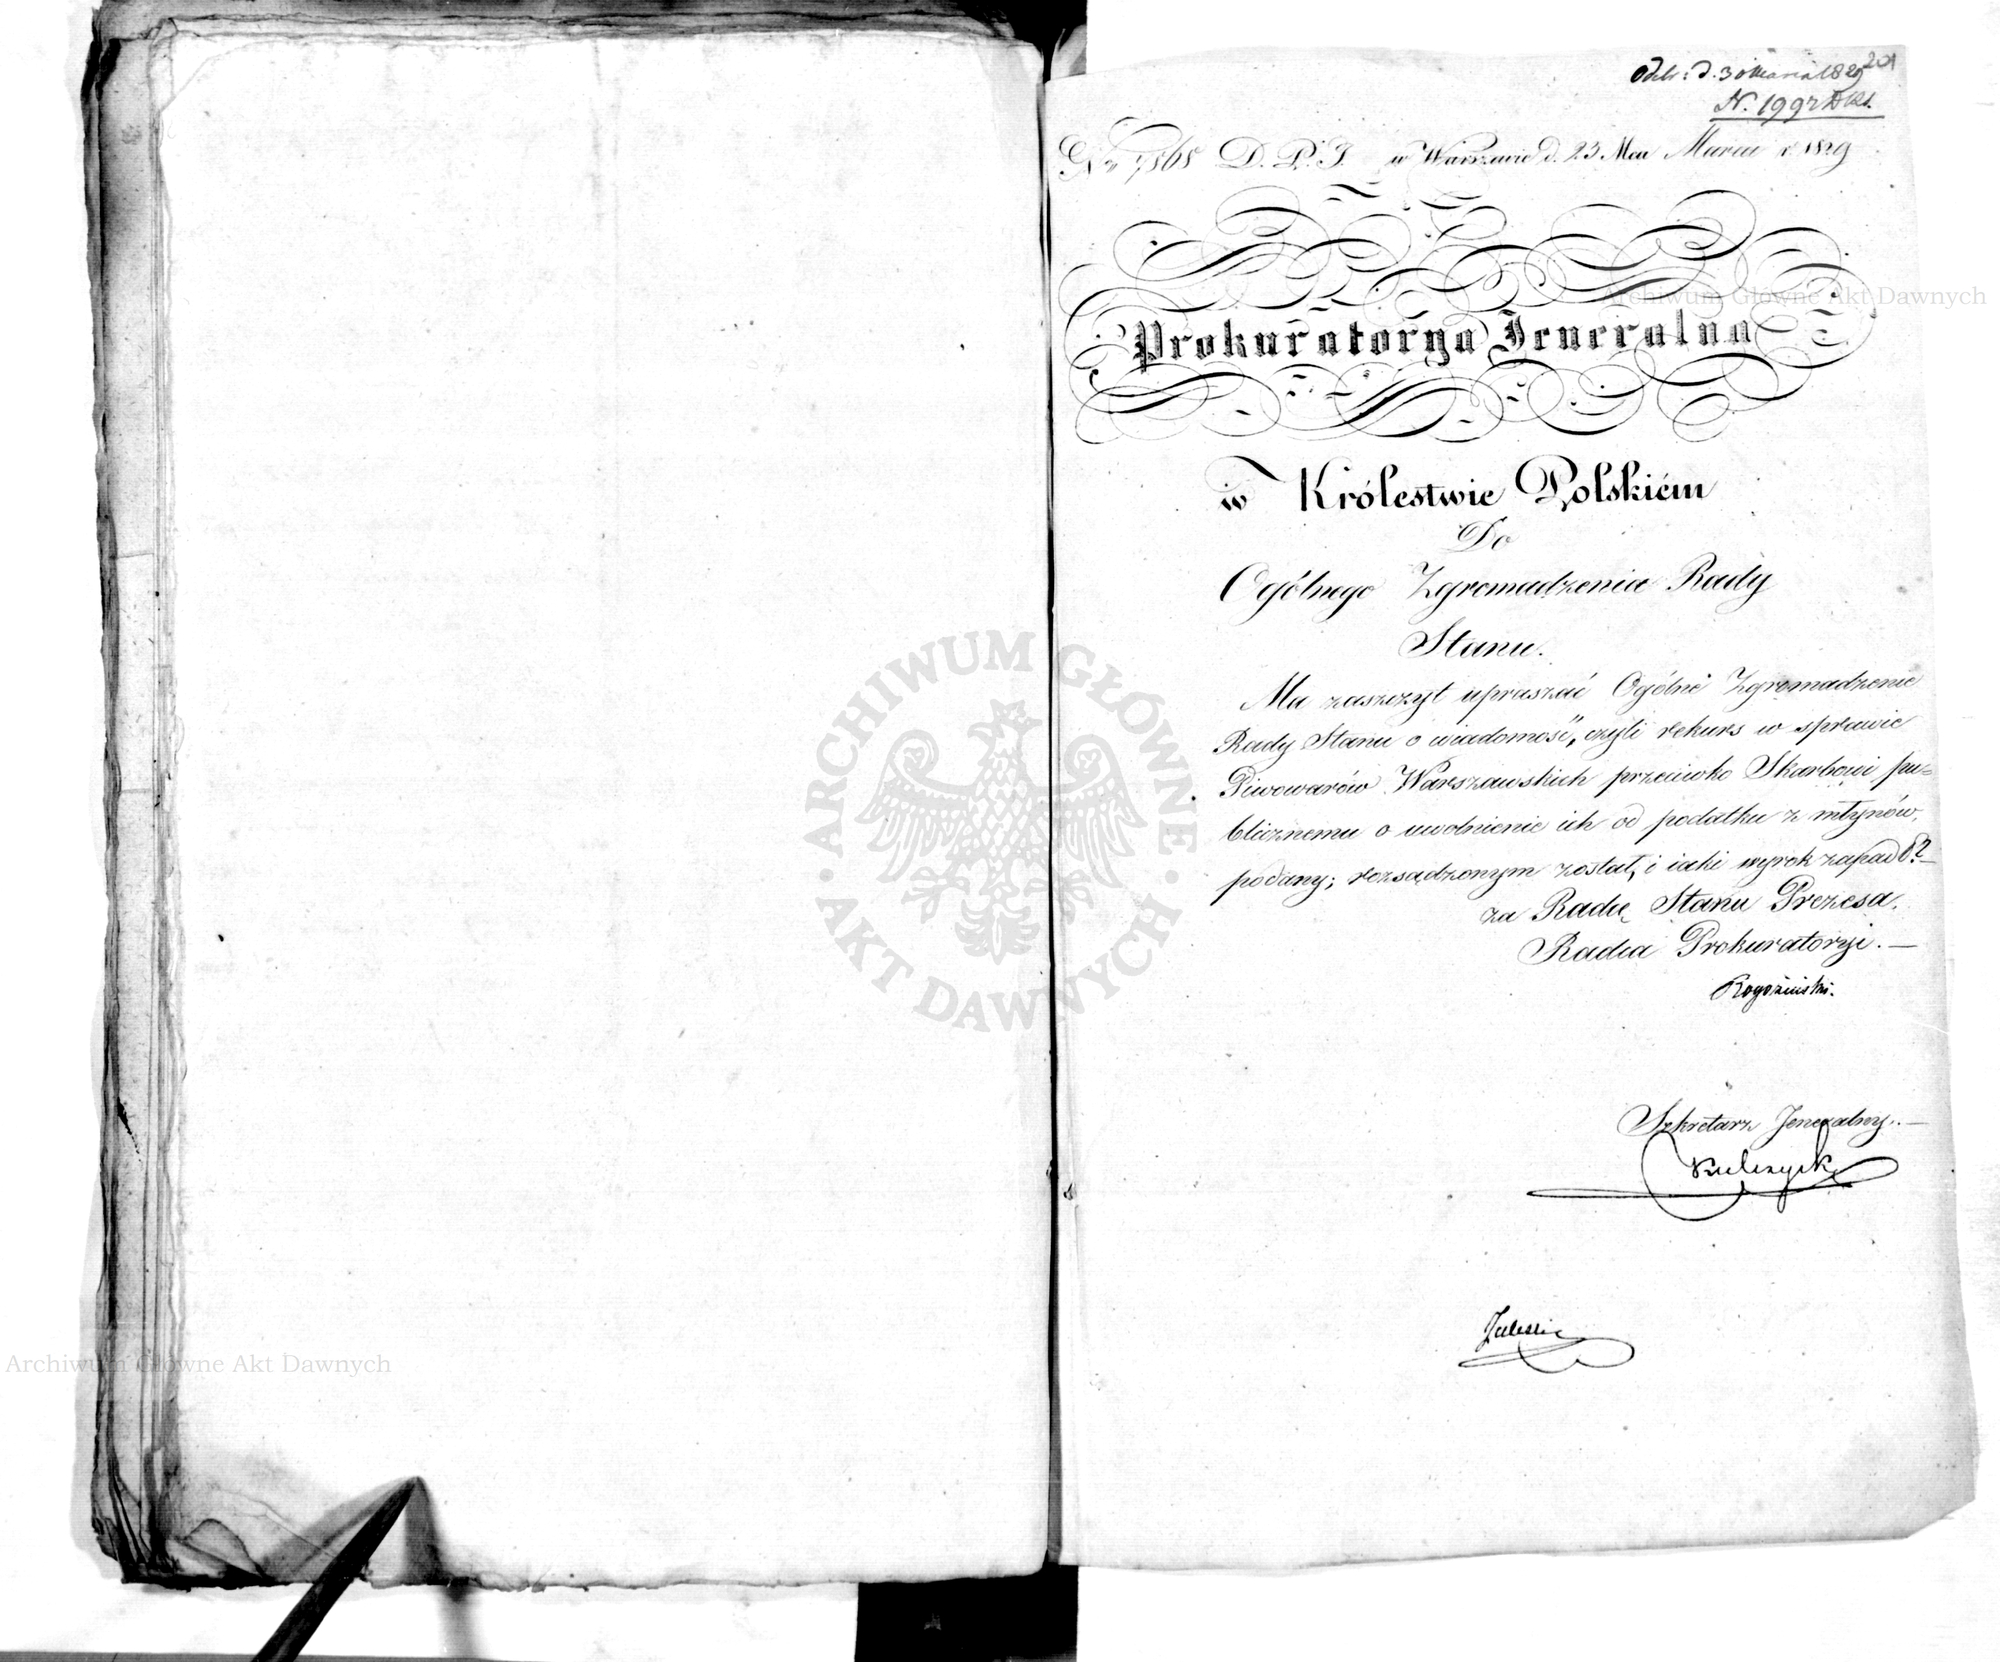 201
Odebr: d. 30 Marca 1829
N. 1997
No 7868 D. P. J. w Warszawie d. 23 Mca Marca r. 1829
Prokuratorya Jeneralna
w Królestwie Polskiém
Do
Ogólnego Zgromadzenia Rady
Stanu.
Ma zaszczyt upraszać Ogólne Zgromadzenie
Rady Stanu o wiadomość, czyli rekurs w sprawie
Piwowarów Warszawskich przeciwko Skarbowi pu=
blicznemu o uwolnienie ich od podatku z młynów,
podany; rozsądzonym został, i iaki wyrok zapadł?
za Radcę Stanu Prezesa.
Radca Prokuratoryi. —
Rogoziński.
Sekretarz Jeneralny. —
Kulczycki
Zaleski
Archiwum Główne Akt Dawnych
Archiwum Główne Akt Dawnych
ARCHIWUM GŁÓWNE
AKT DAWNYCH